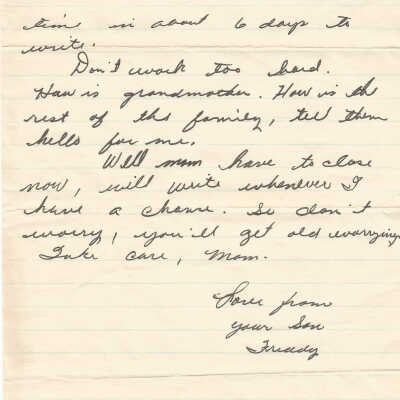 time in about 6 days to
write.
Don't work too hard.
How is grandmother. How is the
rest of the family, tell them
hello for me.
Well mom have to close
now, will write whenever I
have a chance. So don't
worry, you'll get old worrying
Take care, Mom.
Love from
your Son
Freddy